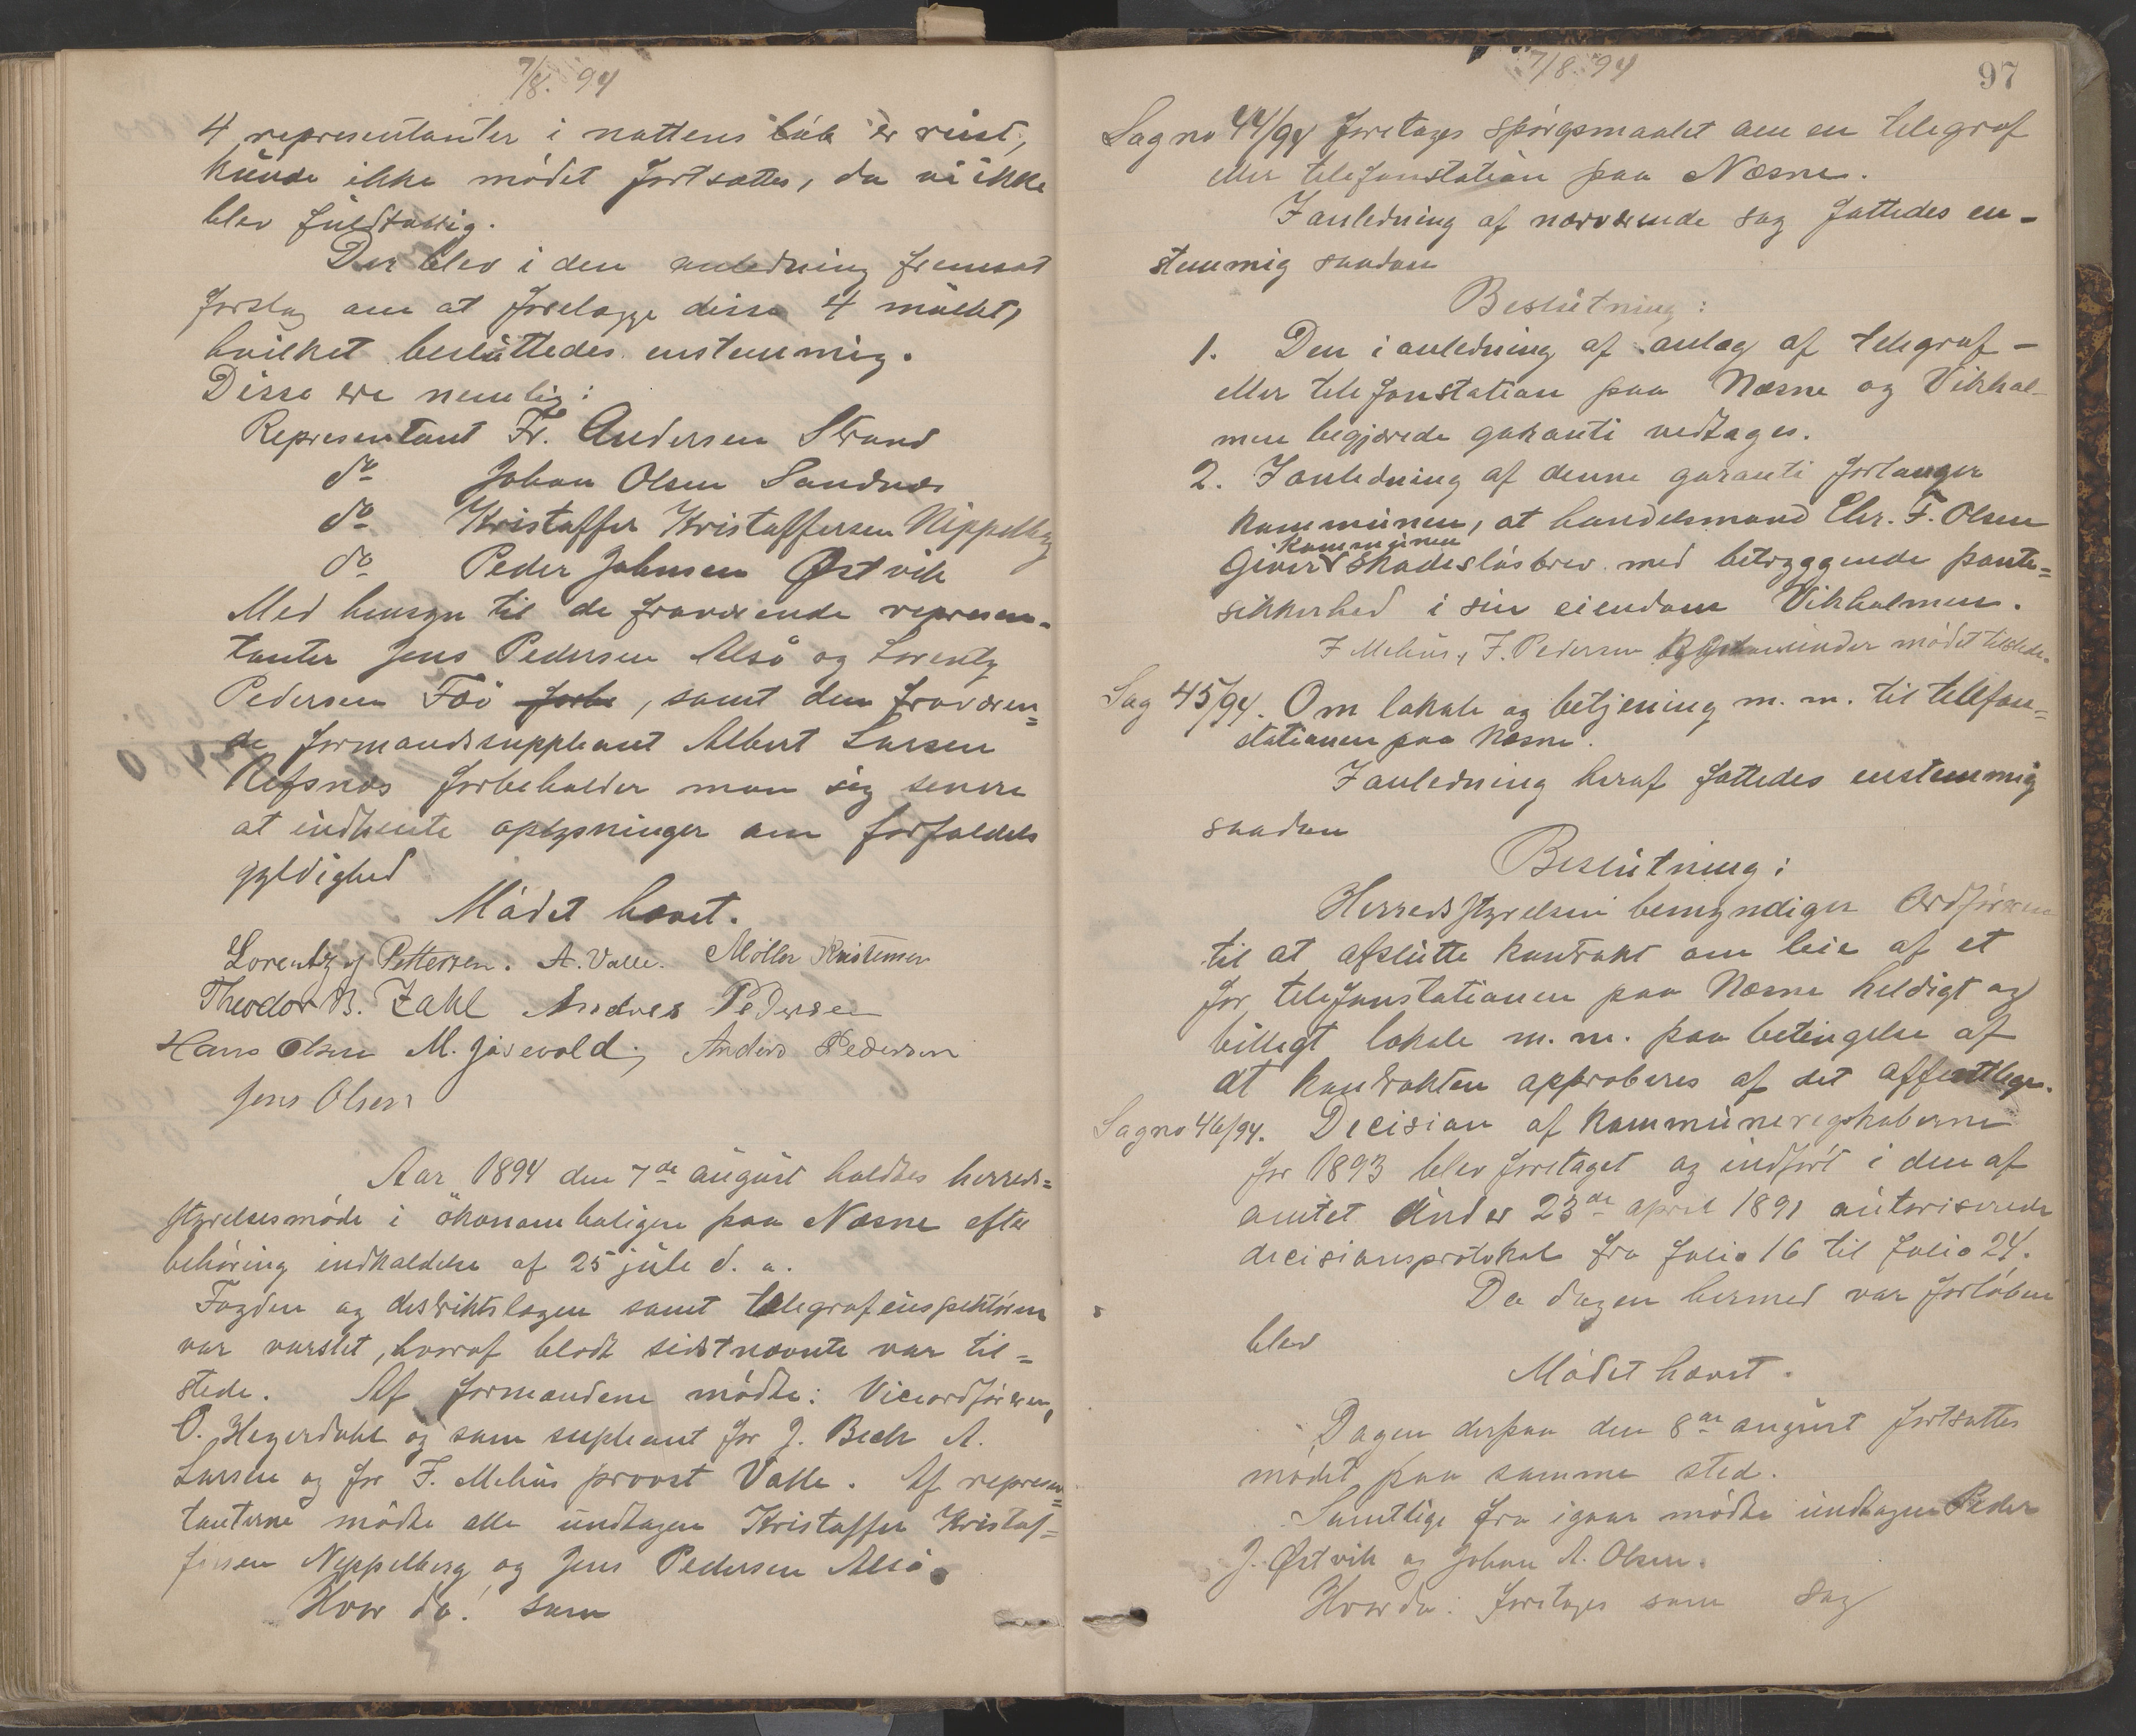 7/8. 94
4 representanter i nattens løb er reist,
kunde ikke mødet fortsættes, da vi ikke
blev fuldtallig.
Der blev i den anledning fremsat
forslag om at forelægge disse 4 mulkt,
hvilket besluttedes enstemmig.
Disse ere nemlig:
Representant Fr. Andersen Strand
do Johan Olsen Sandnæs
do Kristoffer Kristoffersen Neppelberg
do Peder Johnsen Østvik
Med hensyn til de fraværende represen-
tanter Jens Pedersen Alsø og Lorentz
Pedersen Føø forbe, samt den fraværen=
de formandssuppleant Albert Larsen
Refsnæs forbeholder man sig senere
at indhente oplysninger om forfaldets
gyldighed
Mødet hævet.
Lorentz J Pettersen. A. Valle. Møller Kristensen
Theodor B. Zahl Andreas Pedersen
Hans Olsen M. Jøsevold, Anders Pedersen
Jens Olsen
Aar 1894 den 7de august holdtes herreds=
styrelsesmøde i økonomboligen paa Næsne efter
behøring indkaldelse af 25 juli d. a.
Fogden og distriktslægen samt telegrafinspektøren
var varslet, hvoraf blodt sidstnævnte var til=
stede. Af formændene mødte: Viceordføreren,
O. Hegerdahl og som supleant for J. Bech A.
Larsen og for F. Mehus provst Valle. Af represen=
tanterne mødte alle undtagen Kristoffer Kristof=
fersen Neppelberg og Jens Pedersen Alsø.
Hvor da! som
7/8. 94
97
Sag no 44/94 foretages spørgsmaalet om en telegraf
eller telefonstation paa Næsne.
I anledning af nærværende sag fattedes en-
stemmig saadan
Beslutning:
1. Den i anledning af anlæg af telegraf-
eller telefonstation paa Næsne og Vikhol-
men begjærede garanti vedtages.
2. I anledning af denne garanti forlanger
kommunen, at handelsmand Chr. F. Olsen
kommunen
Giver skadesløsbrev med betryggende pante=
sikkerhed i sin eiendom Vikholmen.
F Mehus, J. Pedersen under mødet tilstede.
Sag 45/94. Om lokale og betjening m. m. til telefon=
stationen paa Næsne.
I anledning heraf fattedes enstemmig
saadan
Beslutning:
Herredsstyrelsen bemyndiger Ordføreren
til at afslutte kontrakt om leie af et
for telefonstationen paa Næsne heldigt og
billigt lokale m. m. paa betingelse af
at kontrakten approberes af det offentlige.
Sag no 46/94. Decision af kommuneregskaberne
for 1893 blev foretaget og indført i den af
amtet under 23de april 1891 autoriserede
decisionsprotokol fra folio 16 til folio 24.
Da dagen hermed var forløben
blev
Mødet hævet.
Dagen derpaa den 8de august fortsattes
mødet paa samme sted.
Samtlige fra igaar mødte undtagen Peder
J. Østvik og Johan A. Olsen.
Hvor da: foretages som sag